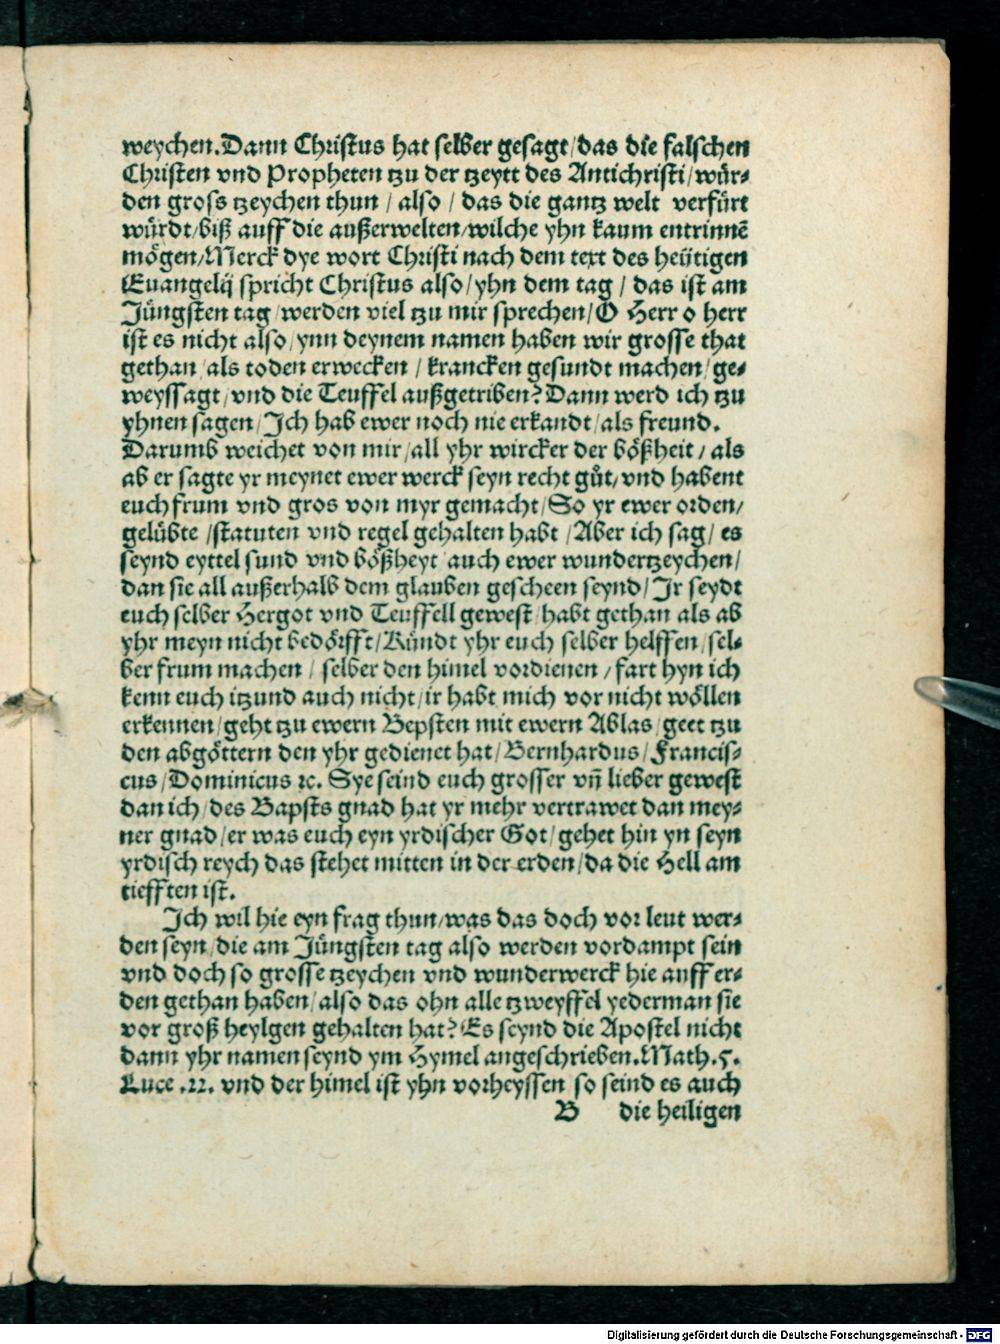 weychen.Dann Christus hat selber gesagt/das die falschen
Christen vnd Propheten tzu der tzeytt des Antichristi/wür-
den gross tzeychen thun / also / das die gantz welt verfürt
würdt/biß auff die außerwelten/wilche yhn kaum entrinnē
mögen/Merck dye wort Christi nach dem text des heütigen
Euangelij spricht Christus also/yhn dem tag / das ist am
Jüngsten tag/werden viel tzu mir sprechen/O Herr o herr
ist es nicht also/ynn deynem namen haben wir grosse that
gethan/als toden erwecken / krancken gesundt machen/ge-
weyssagt/vnd die Teuffel außgetriben? Dann werd ich tzu
yhnen sagen/Jch hab ewer noch nie erkandt/als freund.
Darumb weichet von mir/all yhr wircker der bößheit/als
ab er sagte yr meynet ewer werck seyn recht gůt/vnd habent
euch frum vnd gros von myr gemacht/So yr ewer orden/
gelübte /statuten vnd regel gehalten habt /Aber ich sag/es
seynd eyttel sund vnd bößheyt/auch ewer wundertzeychen/
dan sie all außerhalb dem glauben gescheen seynd/Jr seydt
euch selber Hergot vnd Teuffell gewest/habt gethan als ab
yhr meyn nicht bedörfft/Kündt yhr euch selber helffen/sel-
ber frum machen / selber den himel vordienen /fart hyn ich
kenn euch itzund auch nicht/ir habt mich vor nicht wöllen
erkennen/geht tzu ewern Bepsten mit ewern Ablas/geet tzu
den abgöttern den yhr gedienet hat/Bernhardus/Francis-
cus/Dominicus ꝛc. Sye seind euch grosser vn̄ lieber gewest
dan ich/des Bapsts gnad hat yr mehr vertrawet dan mey-
ner gnad/er was euch eyn yrdischer Got/gehet hin yn seyn
yrdisch reych das stehet mitten in der erden/da die Hell am
tiefften ist.
Jch wil hie eyn frag thun/was das doch vor leut wer-
den seyn/die am Jüngsten tag also werden vordampt sein
vnd doch so grosse tzeychen vnd wunderwerck hie auff er-
den gethan haben/also das ohn alle tzweyffel yederman sie
vor groß heylgen gehalten hat? Es seynd die Apostel nicht
dann yhr namen seynd ym Hymel angeschrieben.Math.5.
Luce .22. vnd der himel ist yhn vorheyssen so seind es auch
B die heiligen
Digitalisierung gefördert durch die Deutsche Forschungsgemeinschaft - DFG